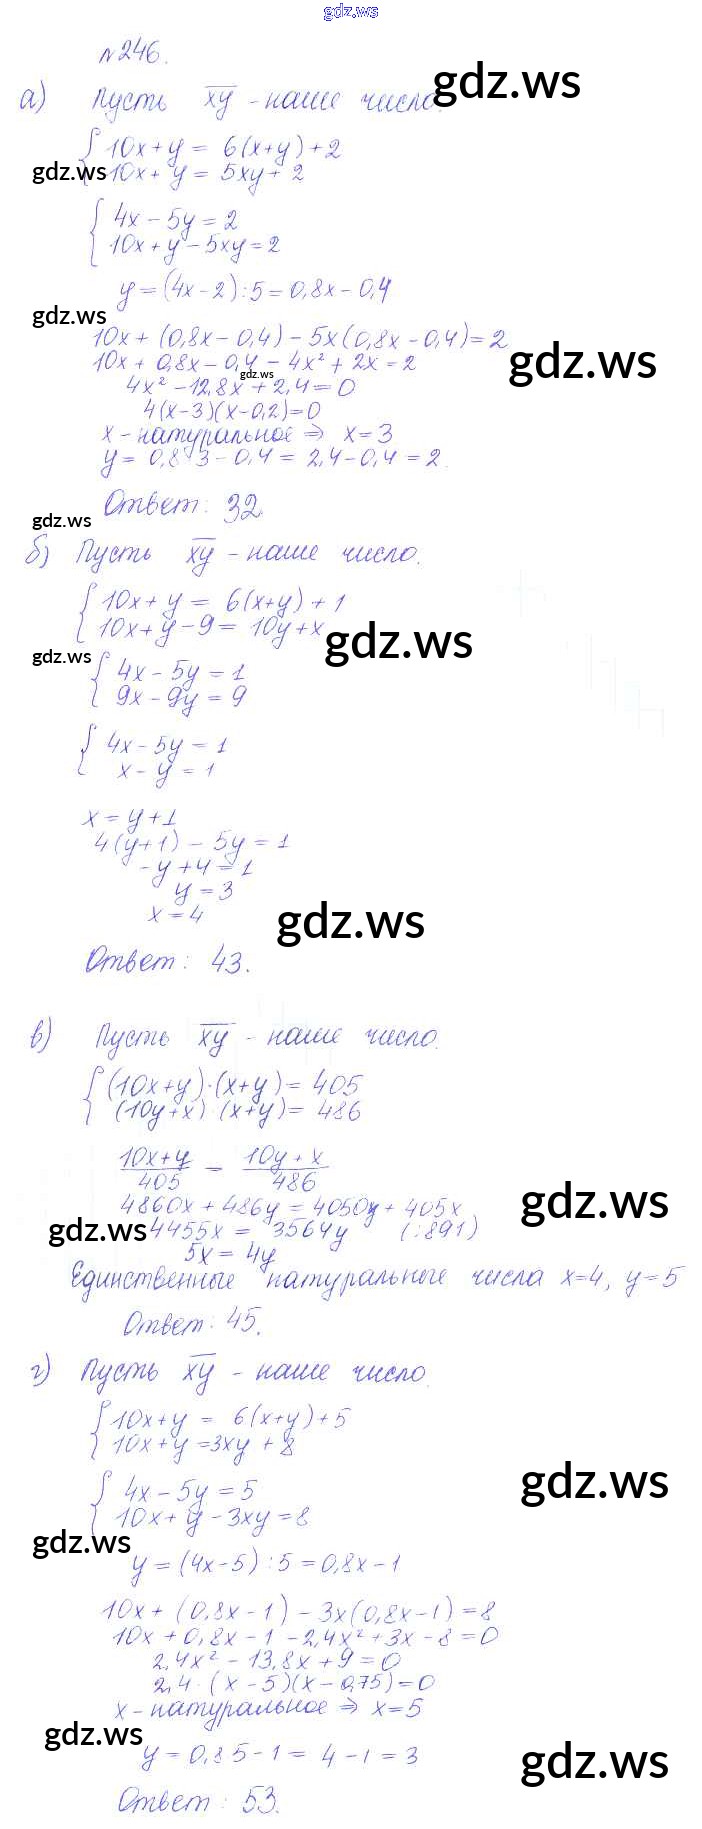 gdz.ws
№246.
а) Пусть xy - наше число.
gdz.ws
10x + y = 6(x+y) + 2
gdz.ws
10x + y = 5xy + 2
4x - 5y = 2
10x + y - 5xy = 2
y = (4x - 2) : 5 = 0,8x - 0,4
gdz.ws
10x + (0,8x - 0,4) - 5x(0,8x - 0,4) = 2
gdz.ws
10x + 0,8x - 0,4 - 4x² + 2x = 2
gdz.ws
4x² - 12,8x + 2,4 = 0
4(x-3)(x-0,2)=0
x - натуральное ⇒ x = 3
y = 0,8·3 - 0,4 = 2,4 - 0,4 = 2.
Ответ: 32.
gdz.ws
б) Пусть xy - наше число.
10x + y = 6(x+y) + 1
10x + y - 9 = 10y + x
gdz.ws
gdz.ws
4x - 5y = 1
9x - 9y = 9
4x - 5y = 1
x - y = 1
x = y + 1
4(y+1) - 5y = 1
-y + 4 = 1
y = 3
x = 4
gdz.ws
Ответ: 43.
в) Пусть xy - наше число.
(10x + y)·(x + y) = 405
(10y + x)·(x + y) = 486
10x + y / 405 = 10y + x / 486
4860x + 486y = 4050y + 405x
gdz.ws
gdz.ws
4455x = 3564y (:891)
5x = 4y
Единственные натуральные числа x=4, y=5
Ответ: 45.
г) Пусть xy - наше число.
10x + y = 6(x+y) + 5
10x + y = 3xy + 8
4x - 5y = 5
gdz.ws
10x + y - 3xy = 8
gdz.ws
y = (4x - 5) : 5 = 0,8x - 1
10x + (0,8x - 1) - 3x(0,8x - 1) = 8
10x + 0,8x - 1 - 2,4x² + 3x - 8 = 0
2,4x² - 13,8x + 9 = 0
2,4·(x - 5)(x - 0,75) = 0
x - натуральное ⇒ x = 5
gdz.ws
y = 0,8·5 - 1 = 4 - 1 = 3
gdz.ws
Ответ: 53.